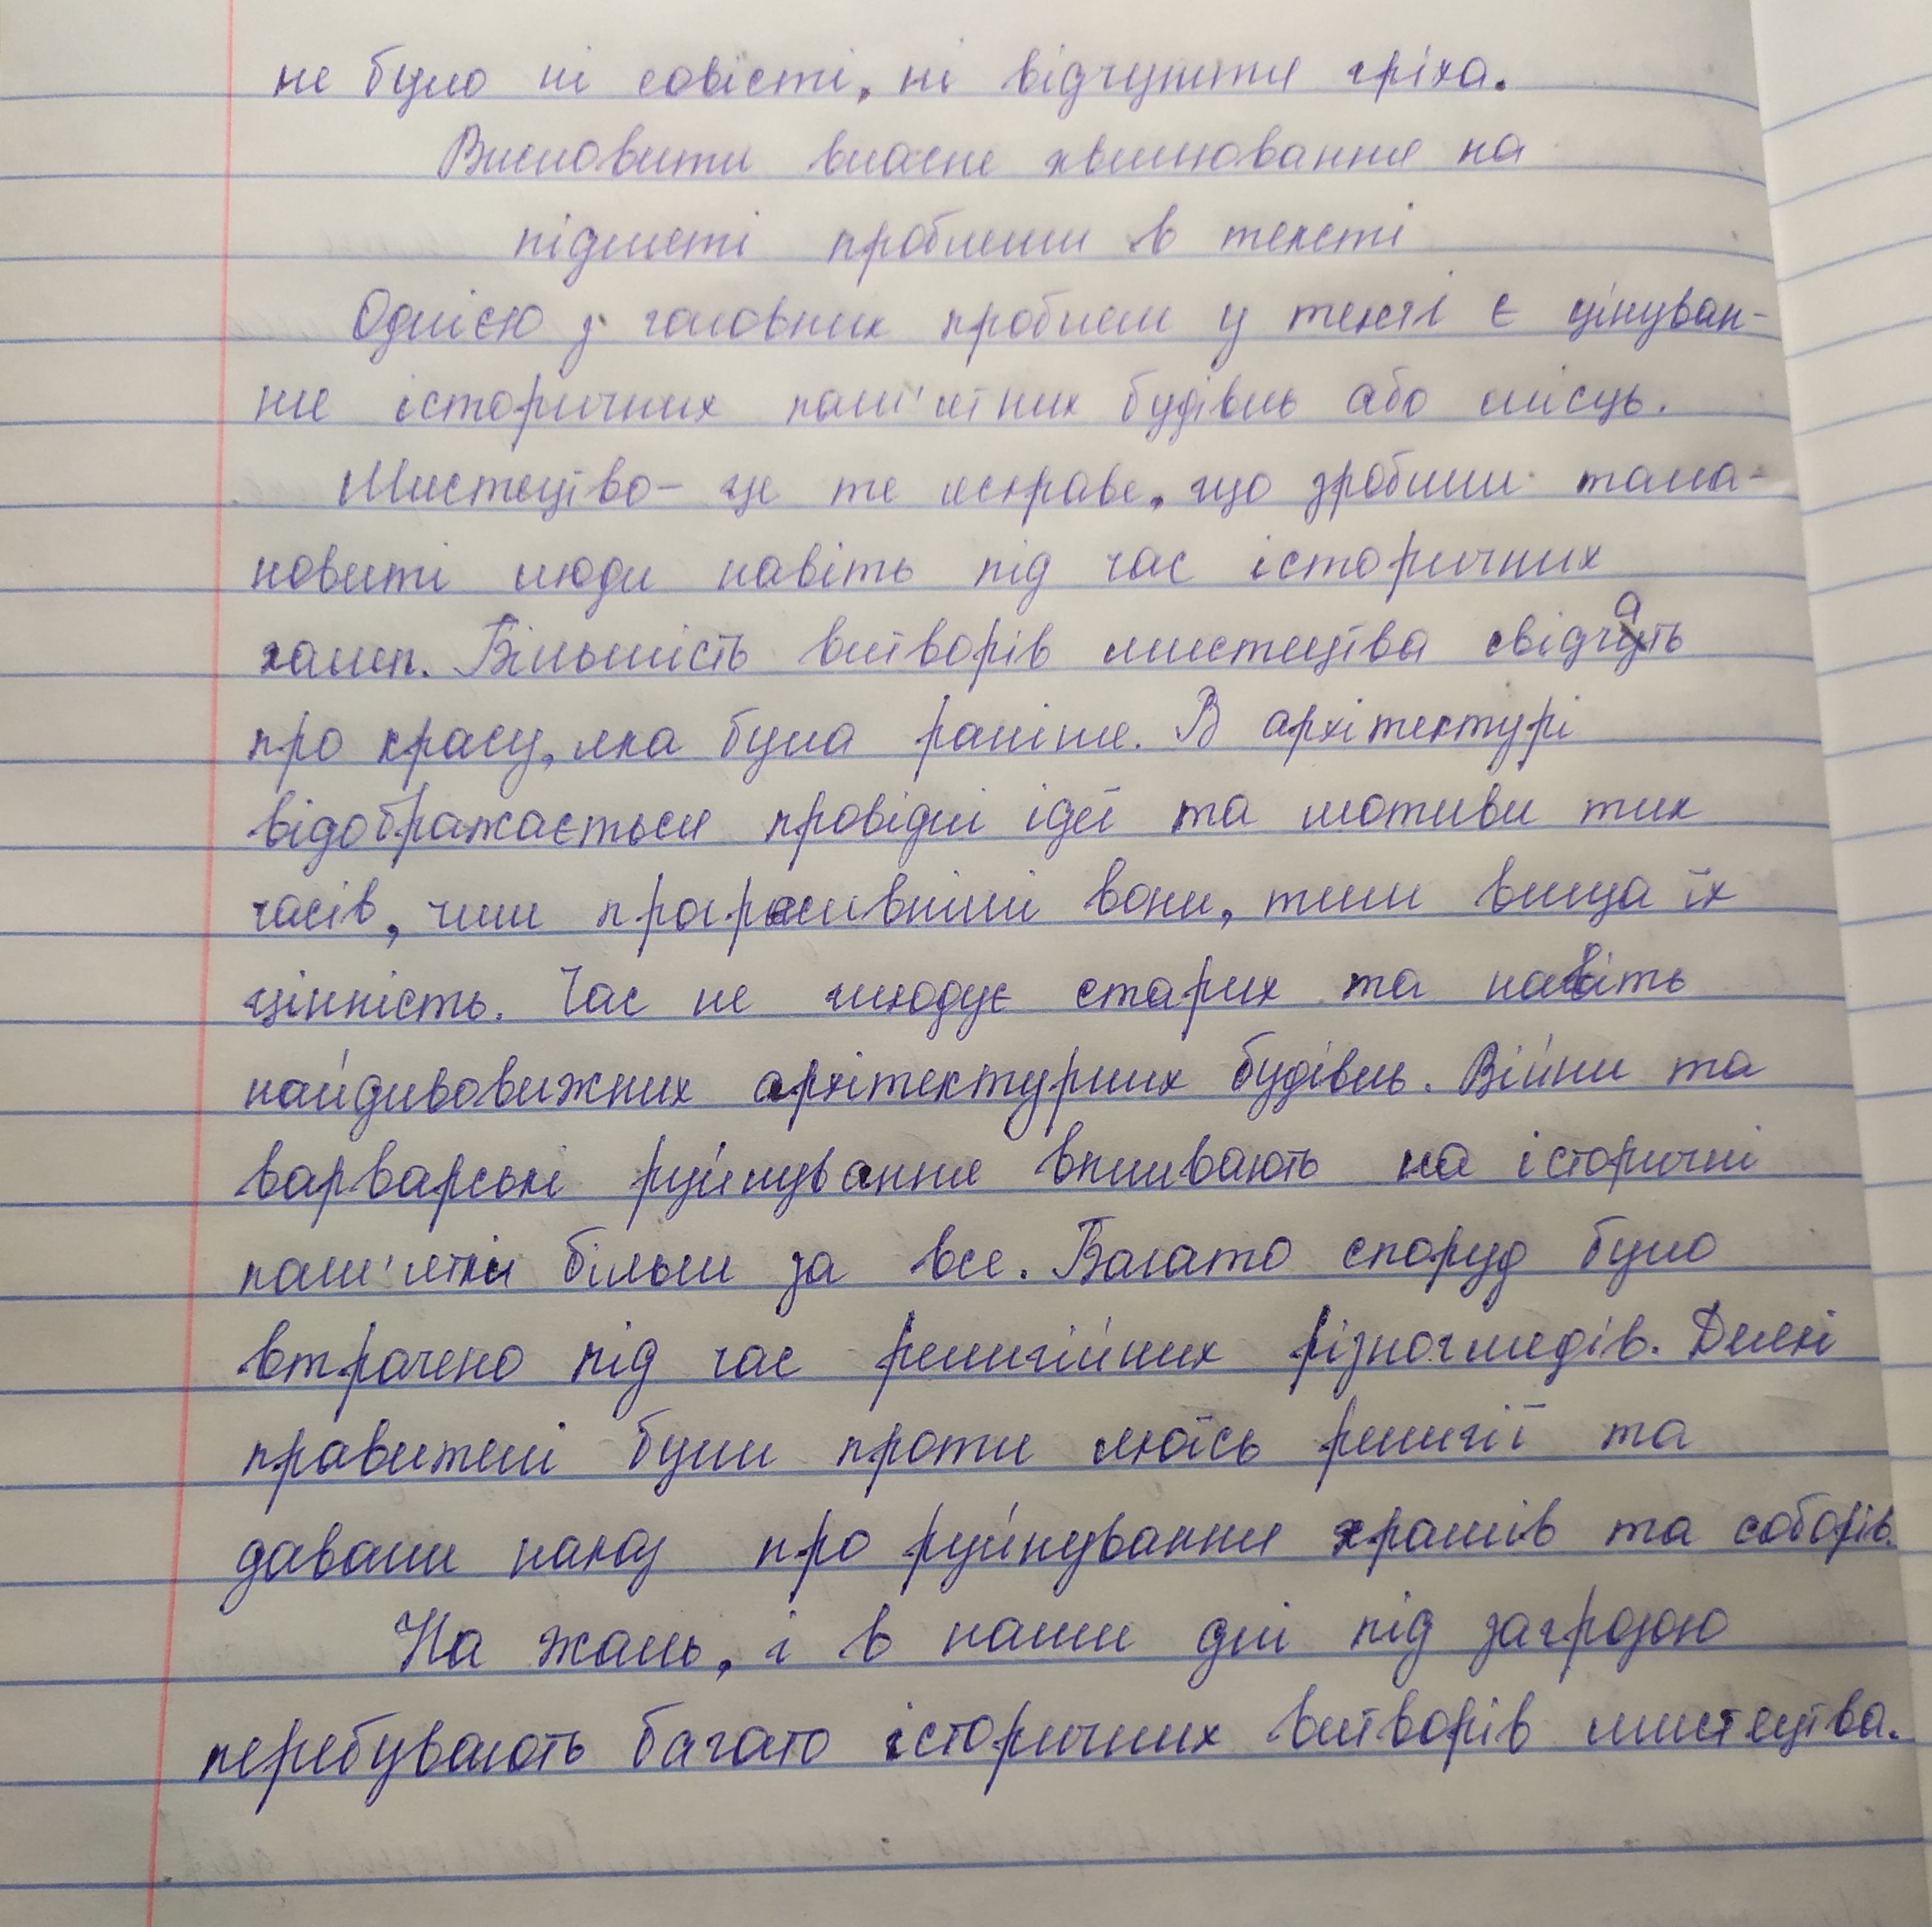 не було ні совісті, ні відчуття гріха.
Висловити власне хвилювання на
підметі проблеми в тексті
Однією з головних проблем у тексті є цінуван-
ня історичних пам'ятних будівль або місць.
Мистецтво - це те яскраве, що зробили тала-
новиті люди навіть під час історичних
халеп. Більшість витворів мистецтва свідчать
про красу, яка була раніше. В архітектурі
відображається провідні ідеї та мотиви тих
часів, чим прогресивніші вони, тим вища їх
цінність. Час не шкодує старих та навіть
найдивовижних архітектурних будівль. Війни та
варварські руйнування впливають на історичні
пам'ятки більш за все. Багато споруд було
втрачено під час религійних різноглядів. Деякі
правителі були проти якоїсь религії та
давали наказ про руйнування храмів та соборів.
На жаль, і в наши дні під загрозою
перебувають багато історичних витворів мистецтва.